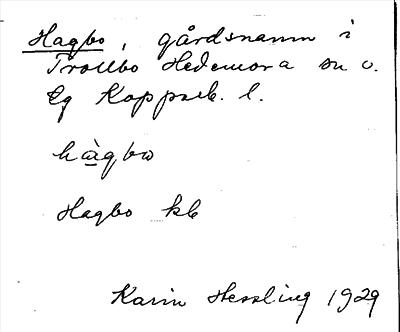 Hagbo, gårdsnamn i
Trollbo Hedemora sn o.
lg Kopparb. l.
hàgbω
Hagbo kb
Karin Hessling 1929